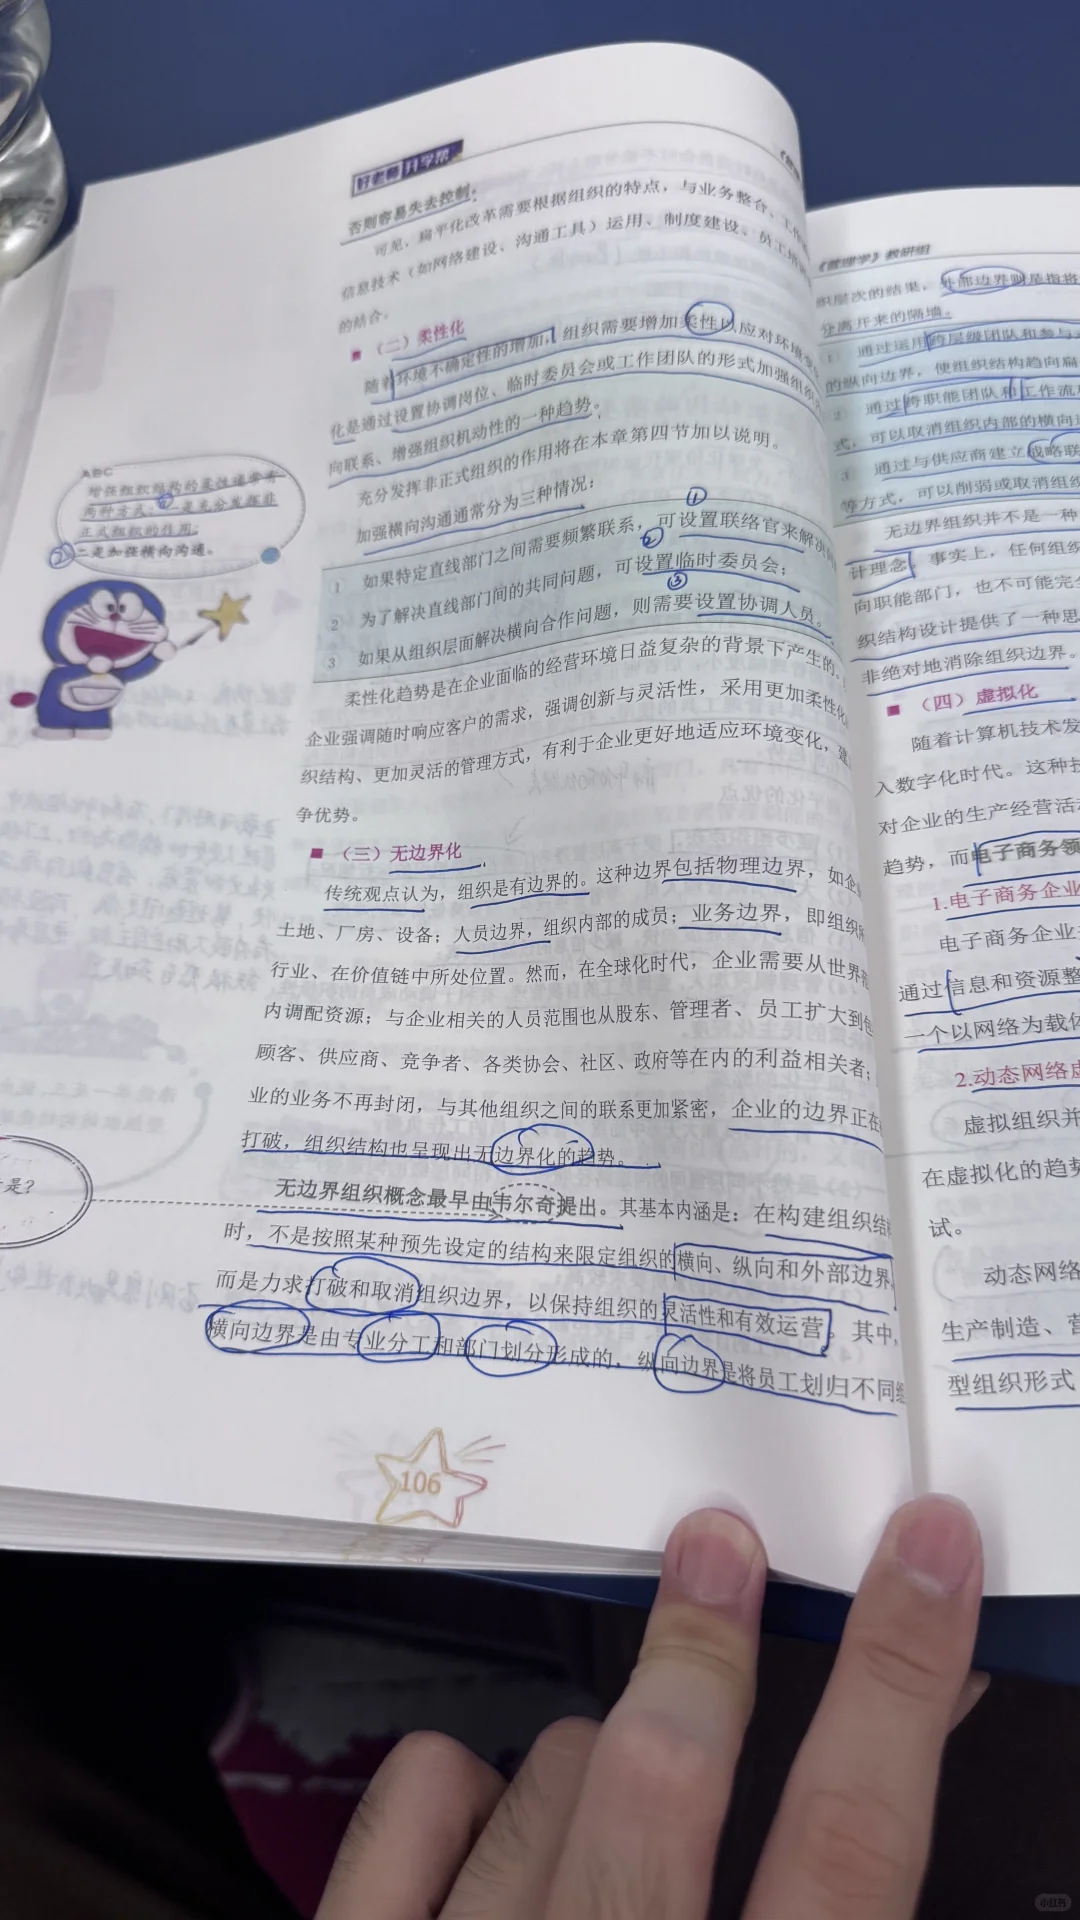 好老师 升学帮
否则容易失去控制。
可见，扁平化改革需要根据组织的特点，与业务整合、工作
信息技术（如网络建设、沟通工具）运用、制度建设、员工培训
的结合。
（二）柔性化
随着环境不确定性的增加，组织需要增加柔性以应对环境变
化是通过设置协调岗位、临时委员会或工作团队的形式加强组织
向联系、增强组织机动性的一种趋势。
充分发挥非正式组织的作用将在本章第四节加以说明。
加强横向沟通通常分为三种情况：
① 如果特定直线部门之间需要频繁联系，可设置联络官来解决
② 为了解决直线部门间的共同问题，可设置临时委员会；
③ 如果从组织层面解决横向合作问题，则需要设置协调人员。
柔性化趋势是在企业面临的经营环境日益复杂的背景下产生的。
企业强调随时响应客户的需求，强调创新与灵活性，采用更加柔性化
织结构、更加灵活的管理方式，有利于企业更好地适应环境变化，建
争优势。
（三）无边界化
传统观点认为，组织是有边界的。这种边界包括物理边界，如企
土地、厂房、设备；人员边界，组织内部的成员；业务边界，即组织
行业、在价值链中所处位置。然而，在全球化时代，企业需要从世界
内调配资源；与企业相关的人员范围也从股东、管理者、员工扩大到
顾客、供应商、竞争者、各类协会、社区、政府等在内的利益相关者；
业的业务不再封闭，与其他组织之间的联系更加紧密，企业的边界正在
打破，组织结构也呈现出无边界化的趋势。
无边界组织概念最早由韦尔奇提出。其基本内涵是：在构建组织结
时，不是按照某种预先设定的结构来限定组织的横向、纵向和外部边界，
而是力求打破和取消组织边界，以保持组织的灵活性和有效运营。其中，
横向边界是由专业分工和部门划分形成的，纵向边界是将员工划归不同组
106
ABC
增强组织结构的柔性通常有
两种方式：一是充分发挥非
正式组织的作用；
二是加强横向沟通。
是？
①
②
③
②
《管理学》教研组
织层次的结果，外部边界则是指将
分离开来的隔墙。
① 通过运用跨层级团队和参与
的纵向边界，使组织结构趋向扁
② 通过跨职能团队和工作流
式，可以取消组织内部的横向边
③ 通过与供应商建立战略联
等方式，可以削弱或取消组织
无边界组织并不是一种
计理念。事实上，任何组织
向职能部门，也不可能完全
织结构设计提供了一种思
非绝对地消除组织边界。
（四）虚拟化
随着计算机技术发
入数字化时代。这种技
对企业的生产经营活动
趋势，而电子商务领
1.电子商务企业
电子商务企业
通过信息和资源整
一个以网络为载体
2.动态网络虚
虚拟组织并
在虚拟化的趋势
试。
动态网络
生产制造、营
型组织形式
小红书